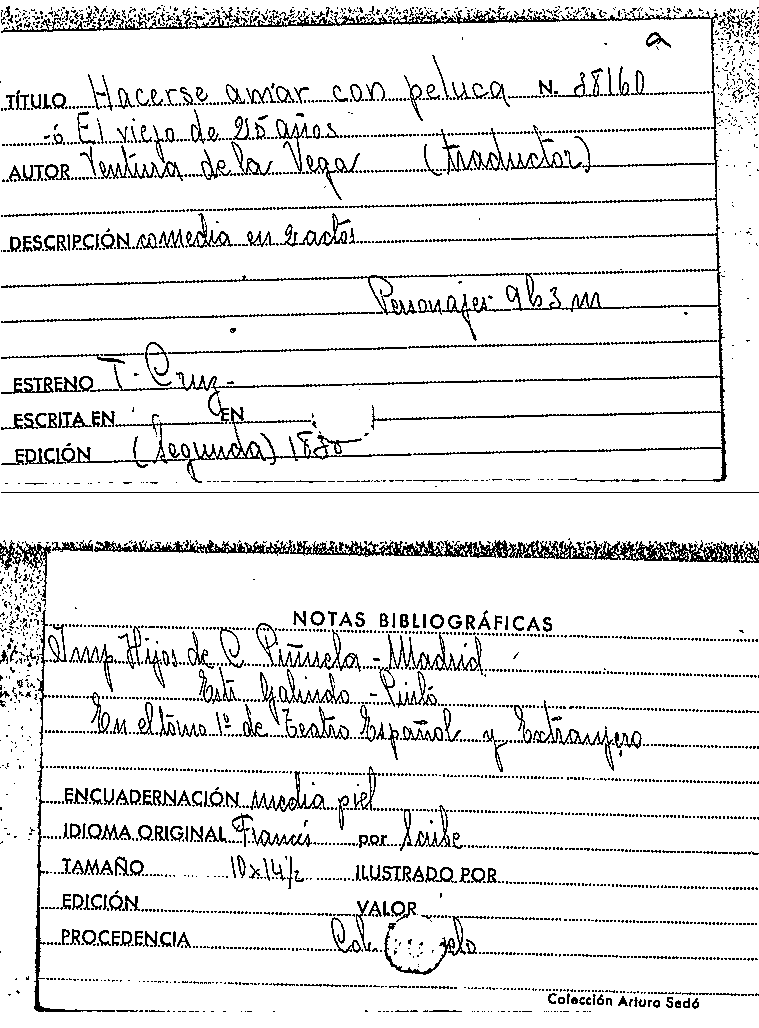 a
TÍTULO Hacerse amar con peluca N. 38160
-ó El viejo de 25 años
AUTOR Ventura de la Vega (traductor)
DESCRIPCIÓN comedia en 2 actos
Personajes 9h 3 m
ESTRENO T. Cruz-
ESCRITA EN EN
EDICIÓN (Segunda) 18
NOTAS BIBLIOGRÁFICAS
Imp Hijos de C. Piñuela - Madrid
Galindo -
En el tomo 1º de Teatro Español y Extranjero
ENCUADERNACIÓN media piel
IDIOMA ORIGINAL Francés por Scribe
TAMAÑO 10x14½ ILUSTRADO POR
EDICIÓN VALOR
PROCEDENCIA
Colección Arturo Sedó